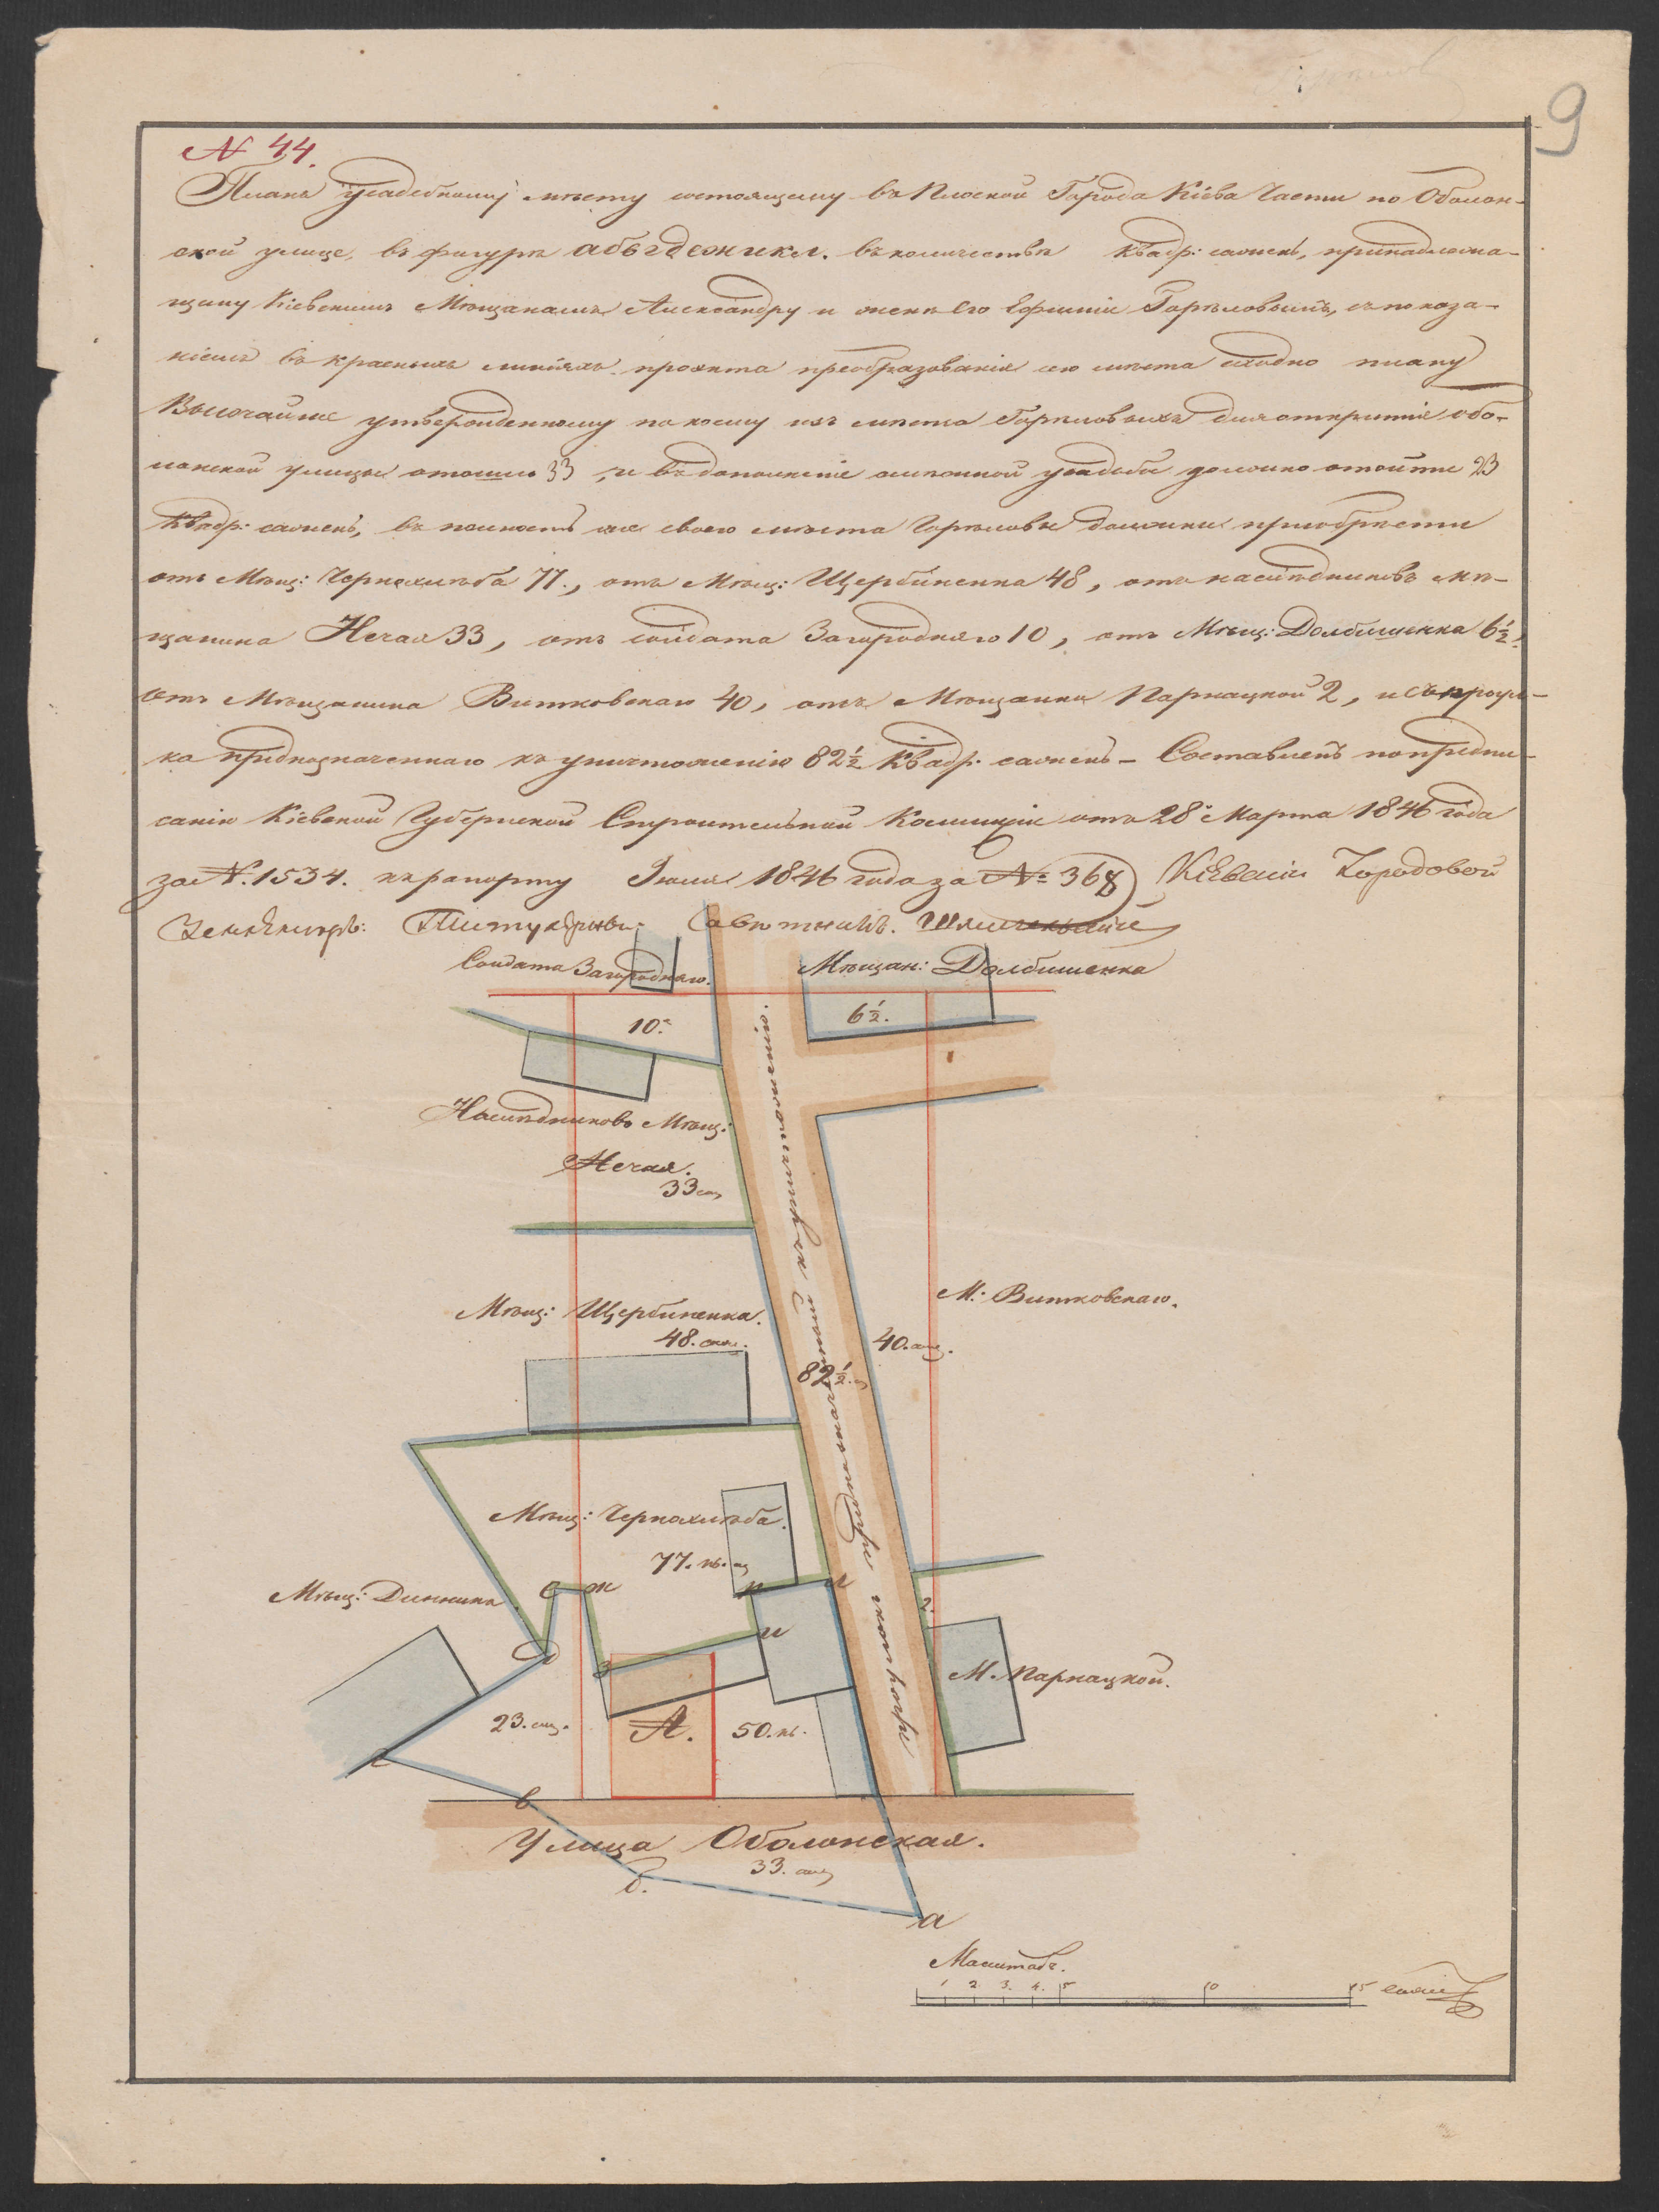 9
N 44.
Планъ усадебному мѣсту состоящему въ Плоской Города Кіева Части по Оболон-
ской улице, въ фигурѣ абвгдежзикл. въ количествѣ квадр: сажень, принадлежа-
щему Кіевскимъ Мѣщанамъ Александру и женѣ Его Ефиміи Горѣловымъ, съ показа-
ніемъ въ красныхъ линіяхъ проэкта преобразованія сего мѣста сходно плану
Высочайше утвержденному по коему изъ мѣста Горѣловыхъ для открытія обо-
лонской улицы отошло 33, и въ дополненіе смѣжной усадьбы должно отойти 23
квадр: сажень, въ полность же своего мѣста Горѣловы должны приобрѣсти
отъ Мѣщ: Чернохлѣба 77., отъ Мѣщ: Щербиненка 48, отъ наслѣдниковъ мѣ-
щанина Нечая 33, отъ солдата Загородняго 10, отъ Мѣщ: Долбишенка 6½,
отъ Мѣщанина Витковскаго 40, отъ Мѣщанки Парнацкой 2, и съ проул-
ка предназначеннаго къ уничтоженію 82½ квадр. сажень — Составленъ по предпи-
санію Кіевской Губернской Строительной Коммиціи отъ 28 Марта 1846 года
за N. 1534. къ рапорту Іюля 1846 года за № 368 Кіевскій Городовой
Землѣмеръ: Титулярный Совѣтникъ.
Солдата Загородняго.
Мѣщан: Долбишенка
10.
6½.
Наслѣдниковъ Мѣщ:
Нечая.
33 саж
Мѣщ: Щербиненка.
48. саж.
М: Витковскаго.
40. саж.
82½. с
проулокъ предназначенный къ уничтоженію.
Мѣщ: Чернохлѣба.
77. кв. са
Мѣщ: Динника
е ж к л
2.
д з и
М. Парнацкой.
23. саж.
А.
50. кв.
г
в
Улица Оболонская.
33. саж
б.
а
Масштабъ.
1 2 3. 4. 5 10 15 сажен